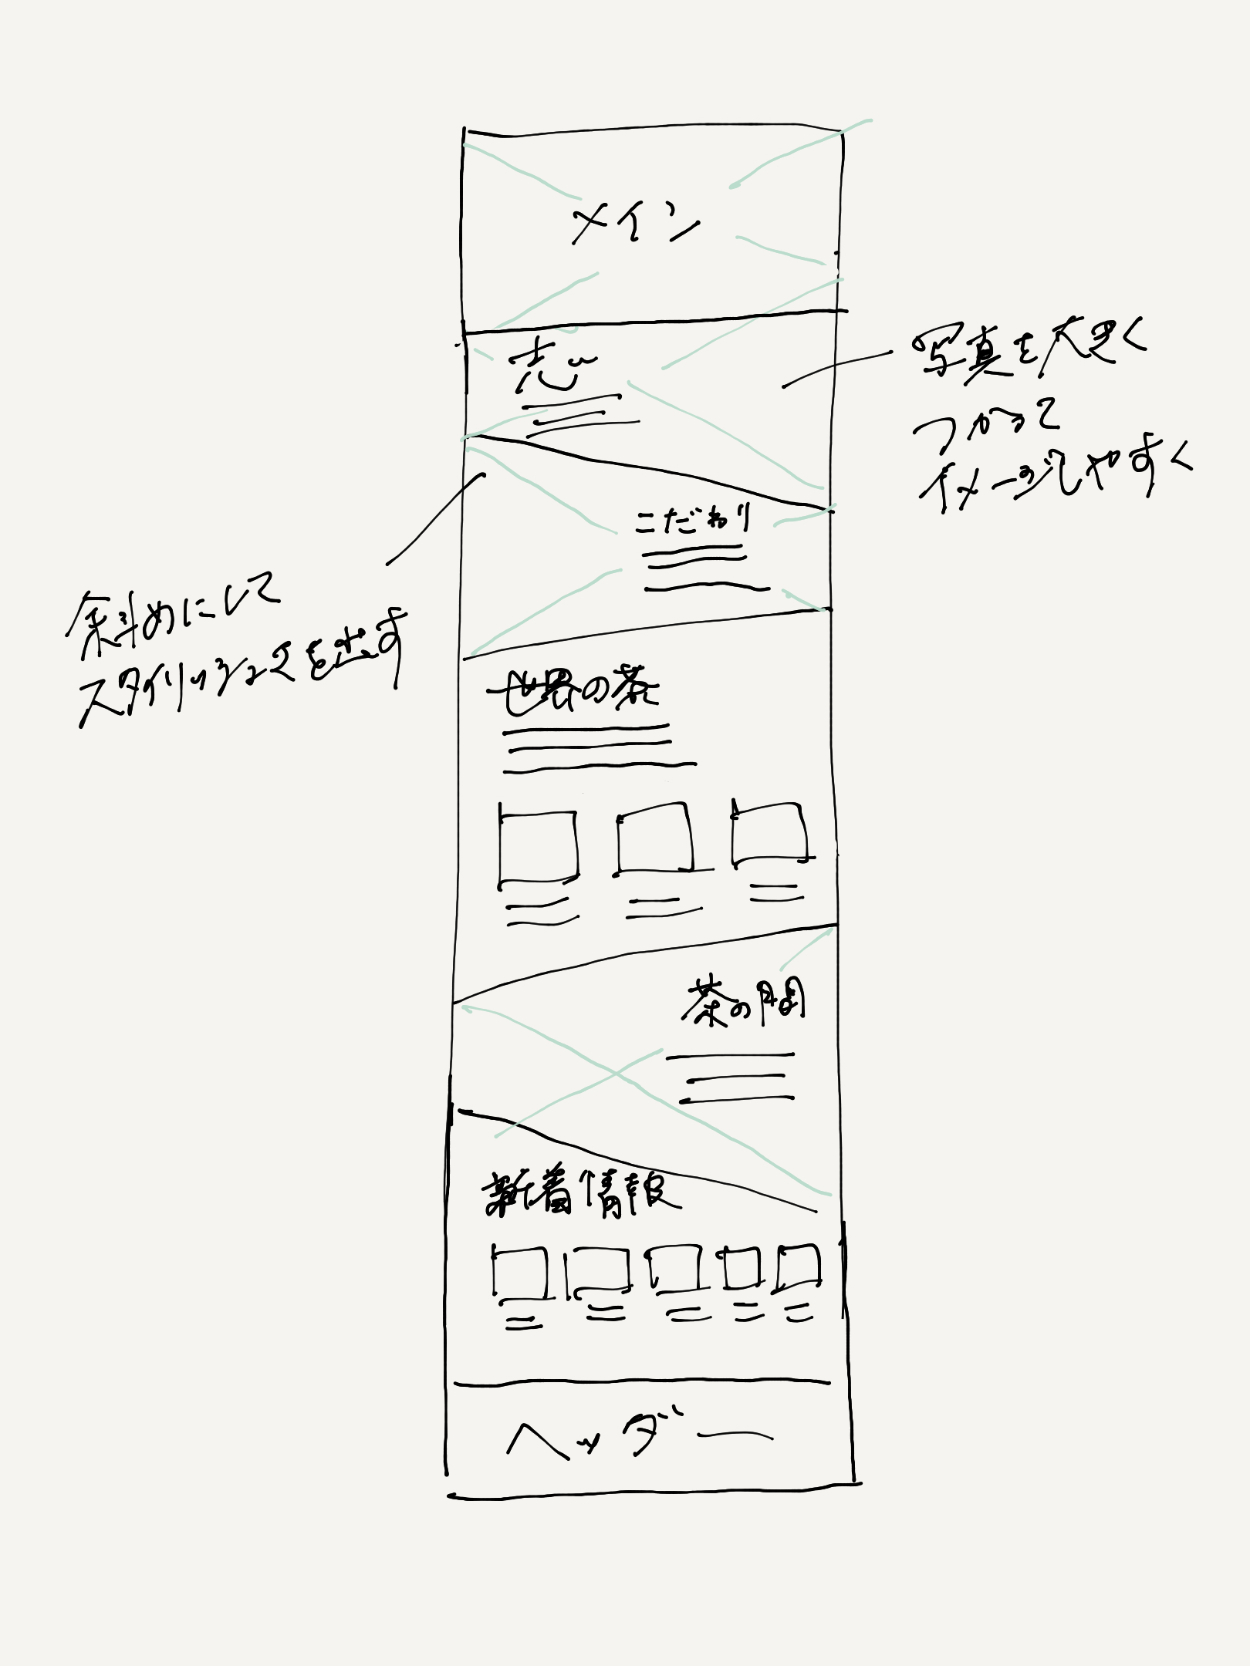 メイン
志
写真を大きく
つかって
イメージしやすく
こだわり
斜めにして
スタイリッシュさを出す
世界の茶
茶の間
新着情報
ヘッダー